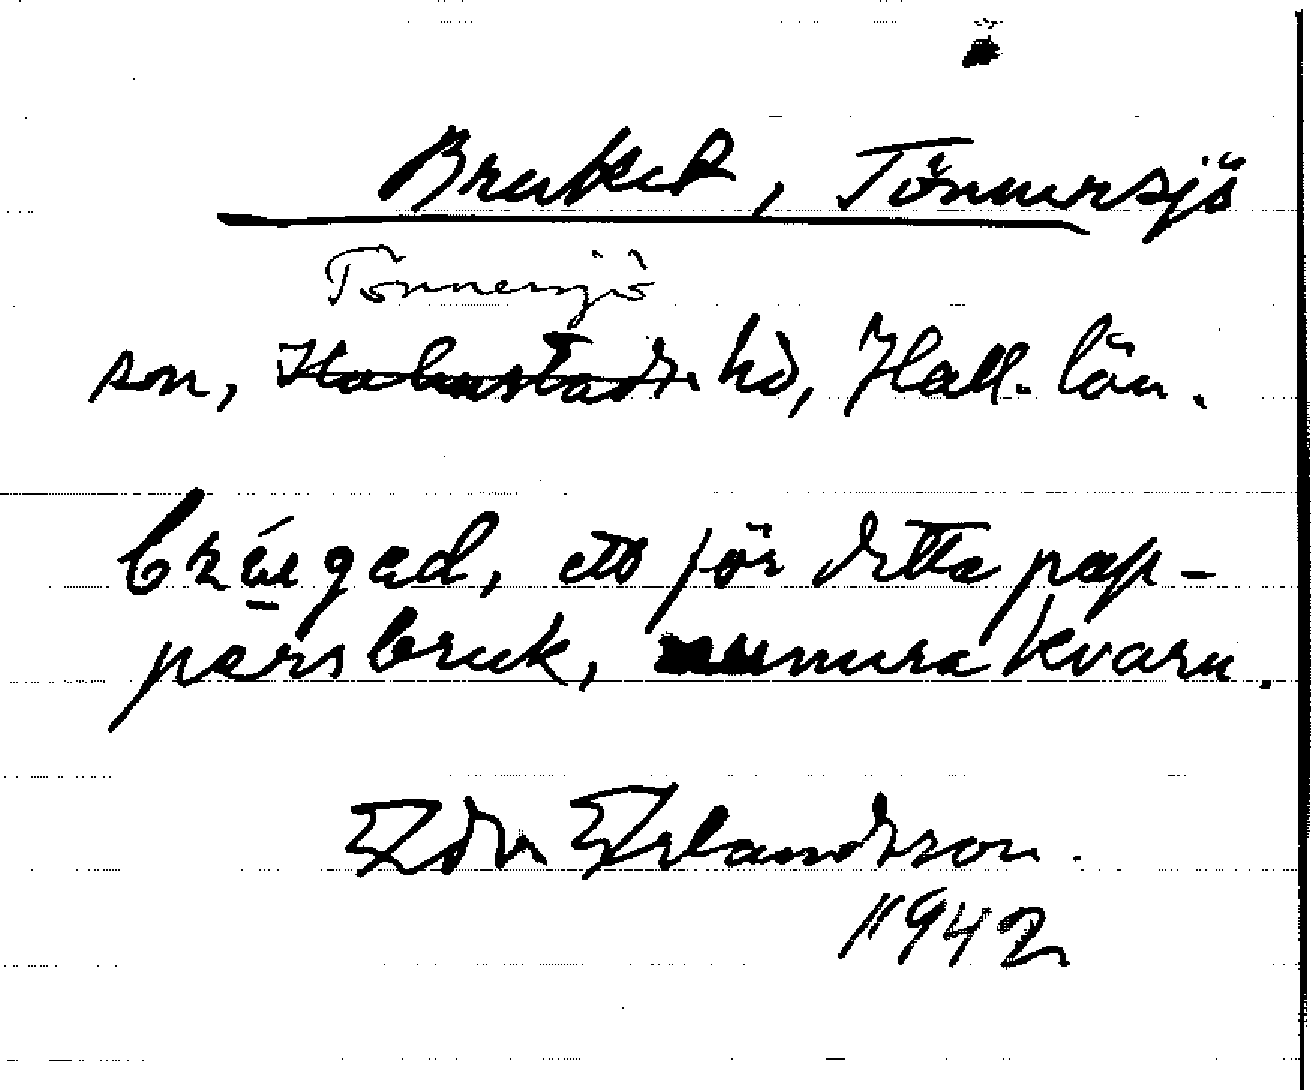 Bruket, Tönnersjö
Tönnersjö
sn, Halmstads hd, Hall. län.
ett för detta pap-
persbruk, numera kvarn.
Edv Erlandsson.
1942